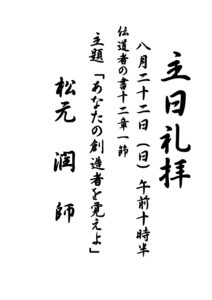 主日礼拝
八月二十二日（日）午前十時半
伝道者の書十二章一節
主題「あなたの創造者を覚えよ」
松元 潤 師